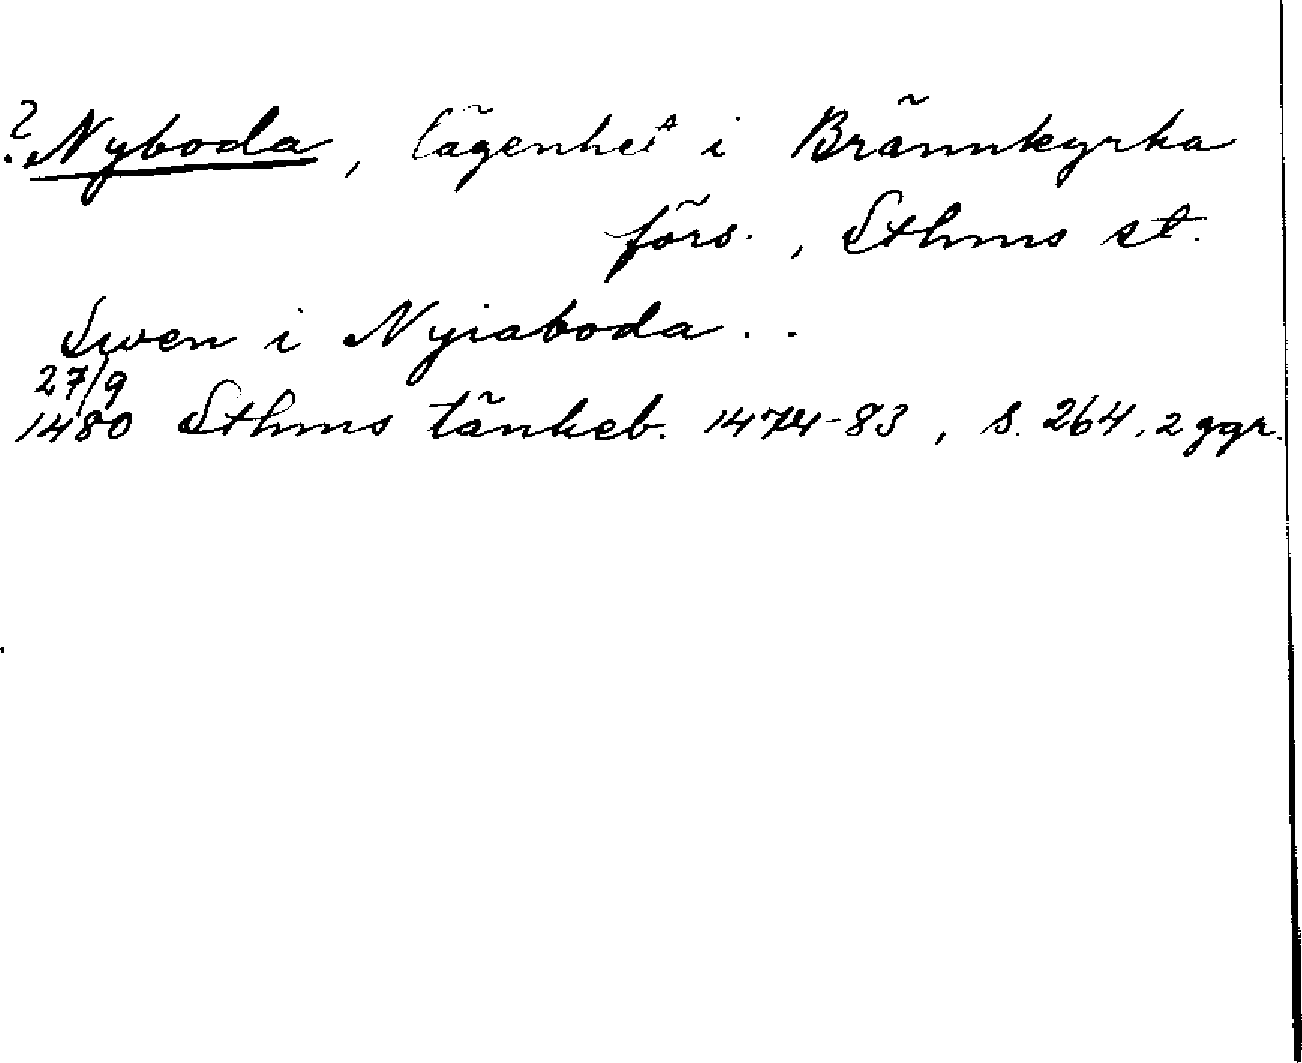 ? Nyboda, lägenhet i Brännkyrka
förs., Sthms st.
Swen i Nyiaboda . .
27/9
1480 Sthms tänkeb. 1474-83, s. 264, 2 ggr.